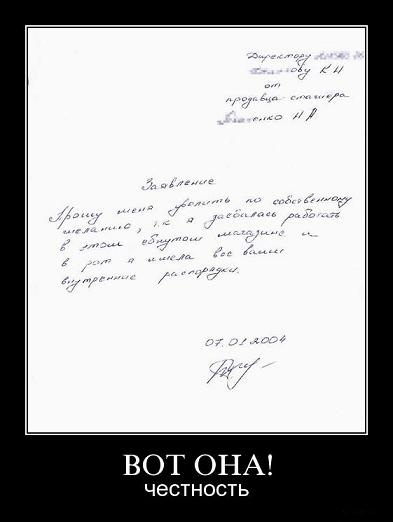 Директору
ову К Н
от
продавца-стажора
енко Н А
Заявление
Прошу меня уволить по собственному
желанию, т.к я заебалась работать
в этом ебнутом магазине и
в рот я имела все ваши
внутренние распорядки.
07.01.2004
ВОТ ОНА!
честность